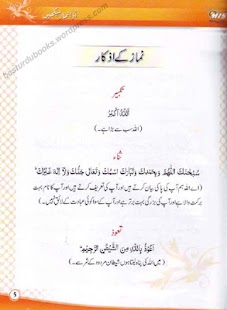 نماز کے اذکار
تکبیر
اَللّٰہُ اَکْبَرُ
(اللہ سب سے بڑا ہے۔)
ثناء
سُبْحٰنَكَ اللّٰهُمَّ وَبِحَمْدِكَ وَتَبَارَكَ اسْمُكَ وَتَعَالٰى جَدُّكَ وَلَآ اِلٰهَ غَيْرُكَ
(اے اللہ ہم آپ کی پاکی بیان کرتے ہیں اور آپ کی تعریف کرتے ہیں اور آپ کا نام بہت
برکت والا ہے اور آپ کی بزرگی بہت برتر ہے اور آپ کے سوا کوئی عبادت کے لائق نہیں۔)
تعوذ
اَعُوْذُ بِاللّٰهِ مِنَ الشَّيْطٰنِ الرَّجِيْمِ
(میں اللہ کی پناہ لیتا ہوں شیطان مردود کے شر سے۔)
5
besturdubooks.wordpress.com